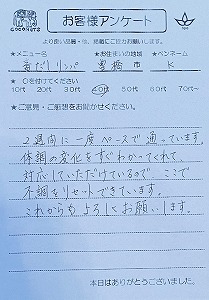 COCONUTS
お客様アンケート
より良い品質・技、接術にご協力お願いします。
★メニュー名 ★お住まいの地域 ★ペンネーム
着だリンパ 豊橋 市 K
★ ○を付けてください
10代 20代 30代 40代 50代 60代 70代〜
★ご意見・ご感想をお聞かせください。
2週間に一度ペースで通っています。
体調の変化をすぐわかってくれて、
対応していただけているので、ここで
不調をリセットできています。
これからもよろしくお願いします。
本日はありがとうございました。